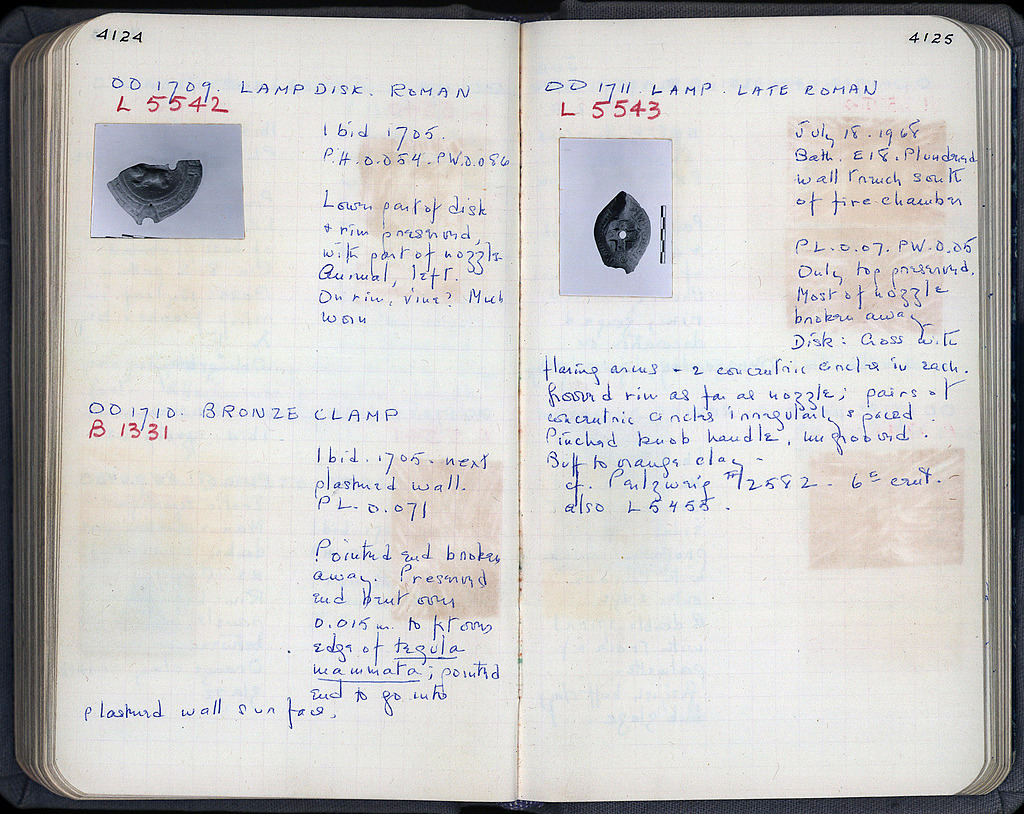 4124
OΔ 1709. LAMP DISK. ROMAN
L 5542
Ibid 1705.
P.H. 0.054. PW. 0.086
Lower part of disk
+ rim preserved,
with part of nozzle.
Animal, left.
On rim, vine? Much
worn
OΔ 1710. BRONZE CLAMP
B 1331
Ibid. 1705. next
plastered wall.
PL. 0.071
Pointed end broken
away. Preserved
end bent over
0.015 m. to fit over
edge of tegula
mammata; pointed
end to go into
plastered wall surface.
4125
OΔ 1711. LAMP. LATE ROMAN
L 5543
July 18. 1968
Bath. E18. Plundered
wall trench south
of fire chamber
PL. 0.07. PW. 0.05
Only top preserved.
Most of nozzle
broken away
Disk: Cross with
flaring arms - 2 concentric circles in each.
Grooved rim as far as nozzle; pairs of
concentric circles irregularly spaced.
Pinched knob handle, ungrooved.
Buff to orange clay.
cf. Perlzweig #2582 - 6th cent.
also L 5455.